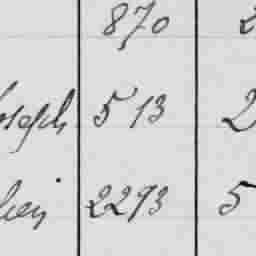 870 2
oseph 513 2
2293 5